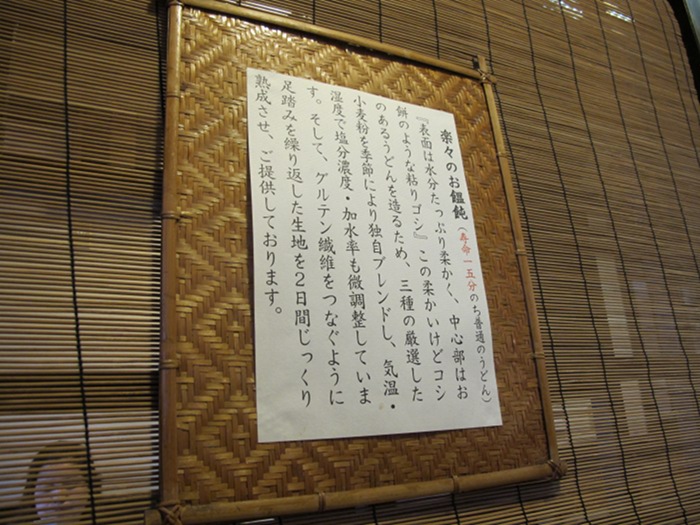 楽々のお饂飩(寿命一五分のち普通のうどん)
『表面は水分たっぷり柔かく、中心部はお
餅のような粘りゴシ』この柔かいけどコシ
のあるうどんを造るため、三種の厳選した
小麦粉を季節により独自ブレンドし、気温・
湿度で塩分濃度・加水率も微調整していま
す。そして、グルテン繊維をつなぐように
足踏みを繰り返した生地を2日間じっくり
熟成させ、ご提供しております。